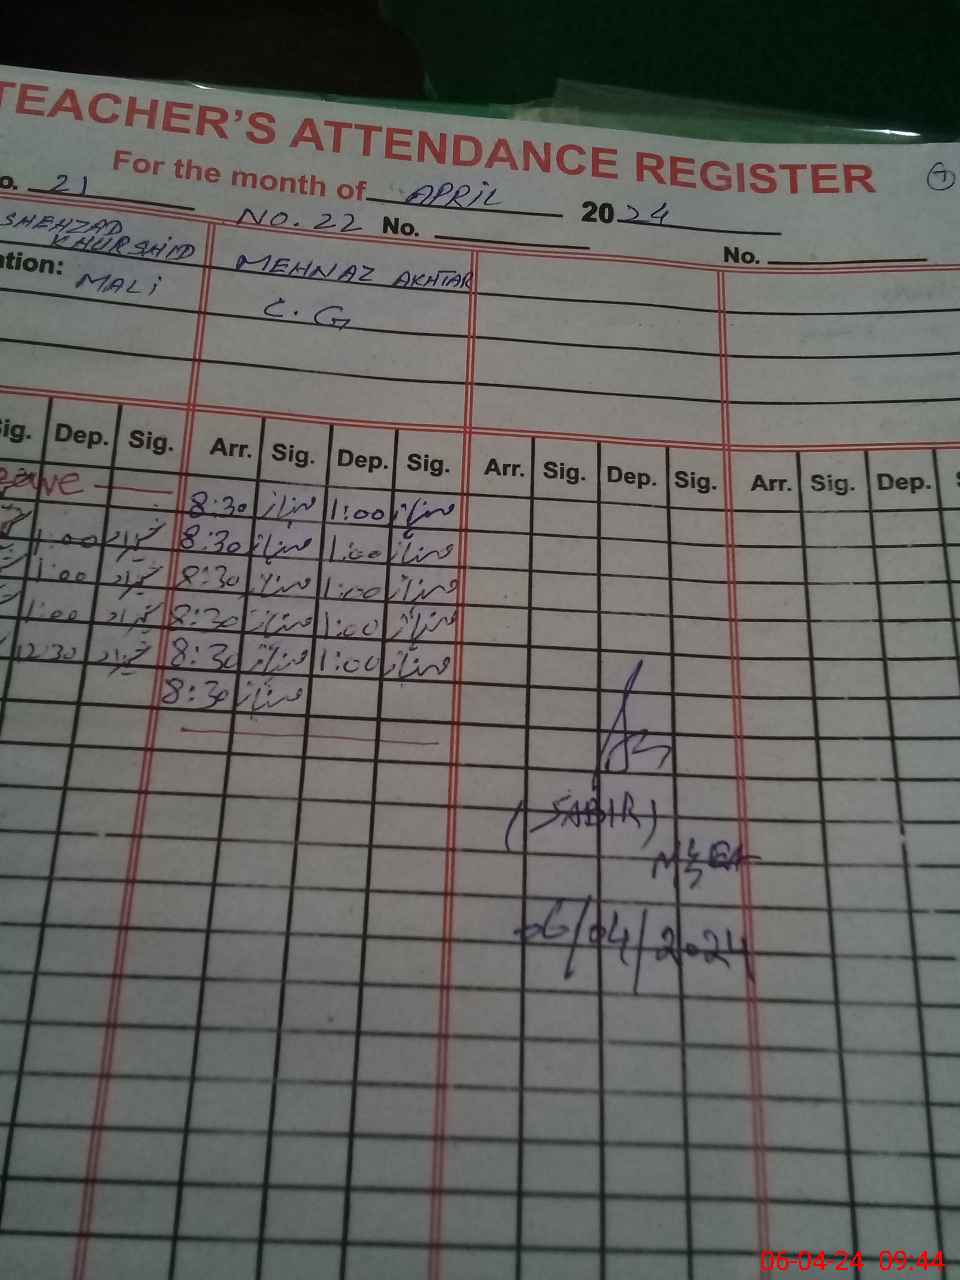 TEACHER'S ATTENDANCE REGISTER
For the month of APRIL 2024
o. 21 NO. 22 No. No.
SHEHZAD
KHURSHID MEHNAZ AKHTAR
ation: MALI C.G
ig. Dep. Sig. Arr. Sig. Dep. Sig. Arr. Sig. Dep. Sig. Arr. Sig. Dep.
8:30 مہناز 1:00 مہناز
1:00 8:30 مہناز 1:00 مہناز
1:00 8:30 مہناز 1:00 مہناز
1:00 8:30 مہناز 1:00 مہناز
12:30 8:30 مہناز 1:00 مہناز
8:30 مہناز
(SABIR)
06/04/2024
06-04-24 09:44